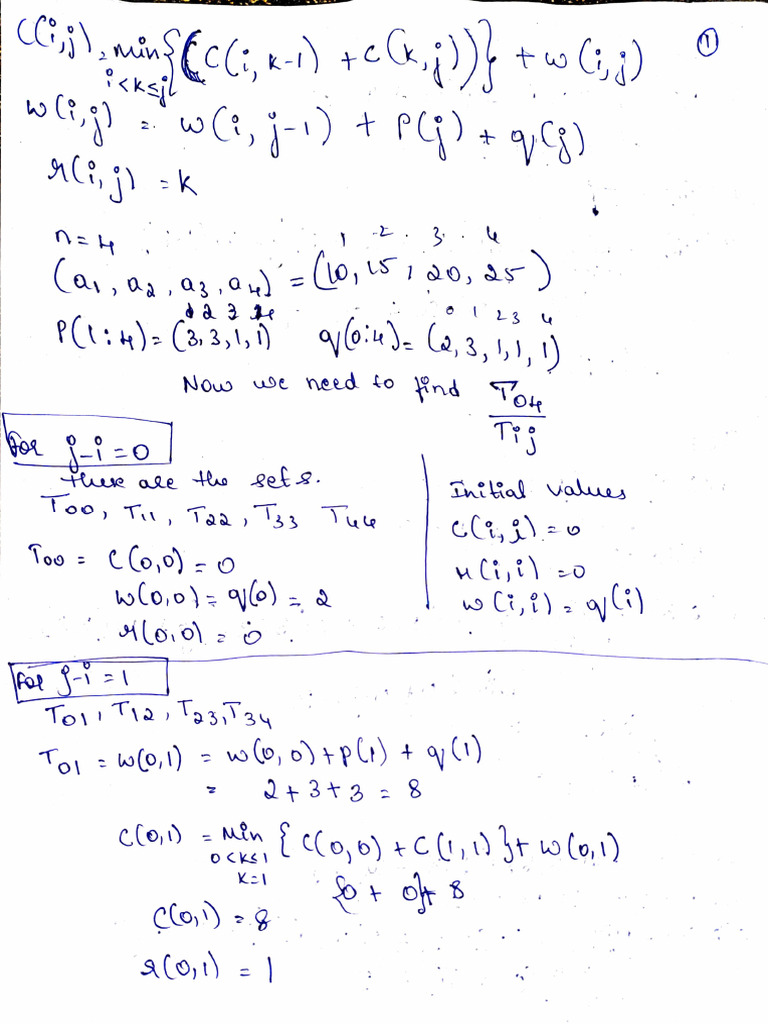 ①
C(i,j) = min {(C(i, k-1) + C(k,j))} + w(i,j)
i<k≤j
w(i,j) = w(i, j-1) + P(j) + q(j)
r(i,j) = k
n=4
1 2 3 4
(a1, a2, a3, a4) = (10, 15, 20, 25)
1 2 3 4 0 1 2 3 4
P(1:4) = (3,3,1,1) q(0:4) = (2,3,1,1,1)
Now we need to find T04
Tij
For j-i=0
these are the sets.
T00, T11, T22, T33 T44
T00 = C(0,0) = 0
w(0,0) = q(0) = 2
r(0,0) = 0
Initial values
C(i,i) = 0
r(i,i) = 0
w(i,i) = q(i)
For j-i=1
T01, T12, T23, T34
T01 = w(0,1) = w(0,0) + P(1) + q(1)
= 2+3+3 = 8
C(0,1) = Min {C(0,0) + C(1,1)} + w(0,1)
0<k≤1
k=1
{0 + 0}+ 8
C(0,1) = 8
r(0,1) = 1